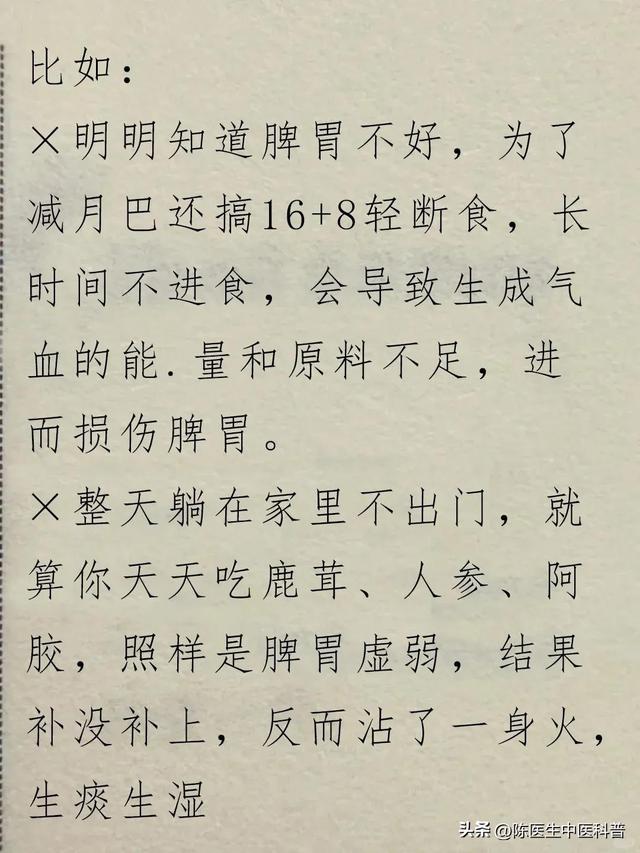 比如：
×明明知道脾胃不好，为了
减月巴还搞16+8轻断食，长
时间不进食，会导致生成气
血的能.量和原料不足，进
而损伤脾胃。
×整天躺在家里不出门，就
算你天天吃鹿茸、人参、阿
胶，照样是脾胃虚弱，结果
补没补上，反而沾了一身火，
生痰生湿
头条 @陈医生中医科普